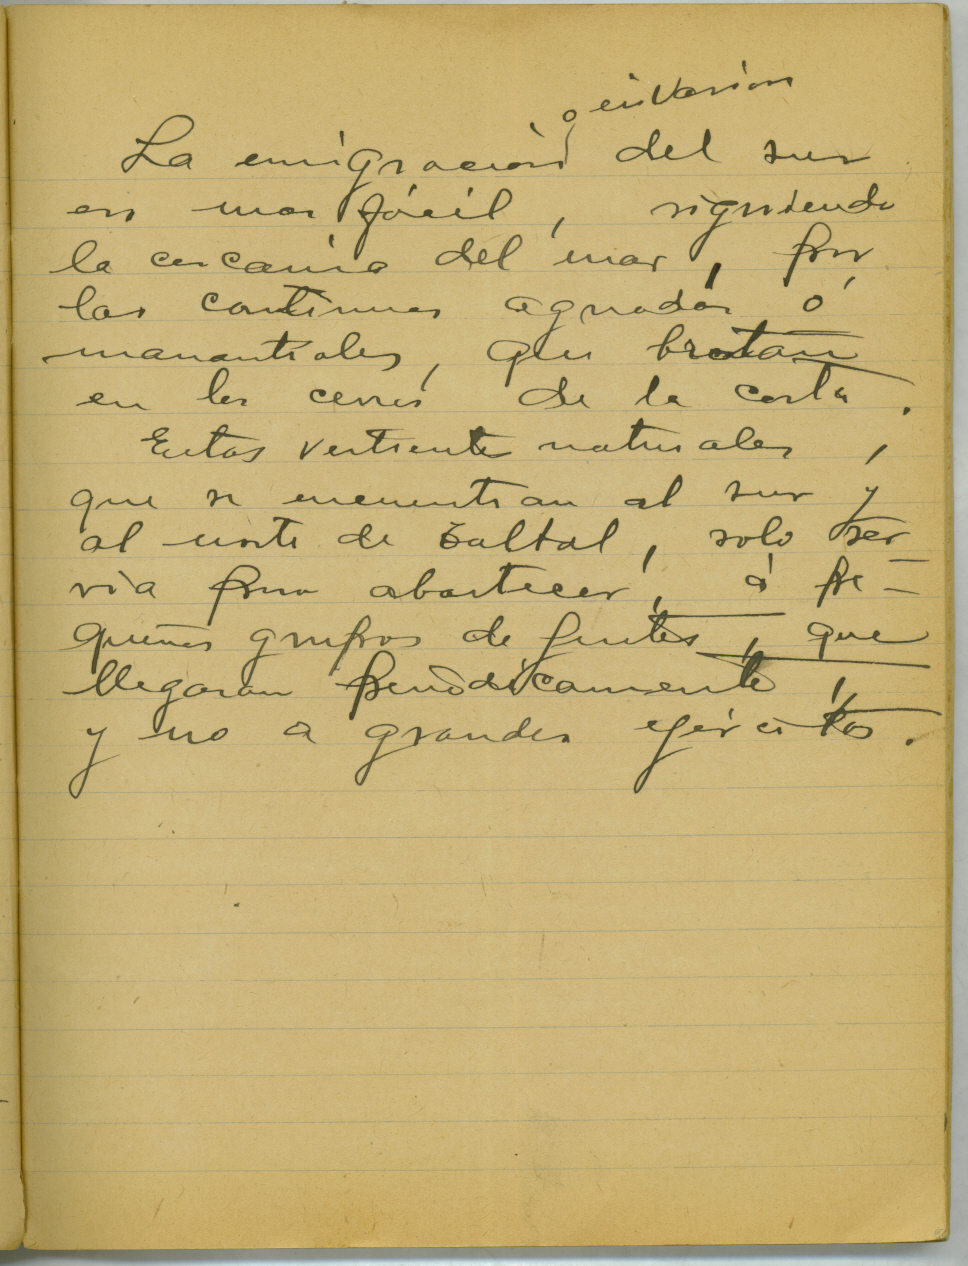 o invasion
La emigración del sur
es mas fácil, siguiendo
la cercania del mar, por
las continuas aguadas ó
manantiales, que brotan
en los cerros de la costa.
Estas vertiente naturales,
que se encuentran al sur y
al norte de Taltal, solo ser
via para abastecer, á pe-
queños grupos de gentes, que
llegaran periódicamente,
y no a grandes ejércitos.